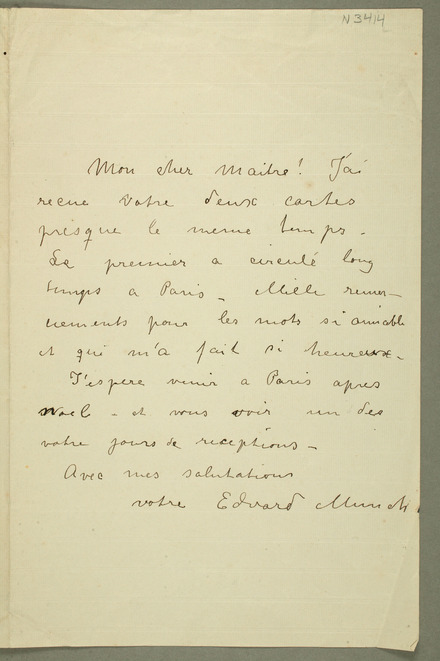 N 3414
Mon cher maitre! J'ai
recue votre deux cartes
presque le meme temps.
Le premier a circulé long
temps a Paris – Mille remer–
ciements pour les mots si amiable
et qui m'a fait si heureux –
J'espere venir a Paris apres
Noel – et vous voir un des
votre jours de receptions –
Avec mes salutations
votre Edvard Munch